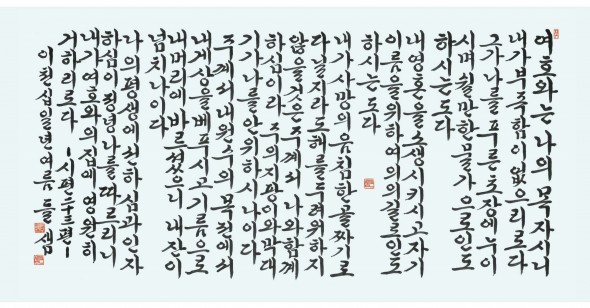 여호와는 나의 목자시니
내가 부족함이 없으리로다
그가 나를 푸른 초장에 누이
시며 쉴만한 물가으로 인도
하시는도다
내 영혼을 소생시키시고 자기
이름을 위하여 의의 길로 인도
하시는도다
내가 사망의 음침한 골짜기로
다닐지라도 해를 두려워하지
않을 것은 주께서 나와 함께
하심이라 주의 지팡이와 막대
기가 나를 안위하시나이다
주께서 내 원수의 목전에서
내게 상을 베푸시고 기름으로
내 머리에 바르셨으니 내 잔이
넘치나이다
나의 평생에 선하심과 인자
하심이 정녕 나를 따르리니
내가 여호와의 집에 영원히
거하리로다 -시편 二十三편-
이천십일년 여름 들샘